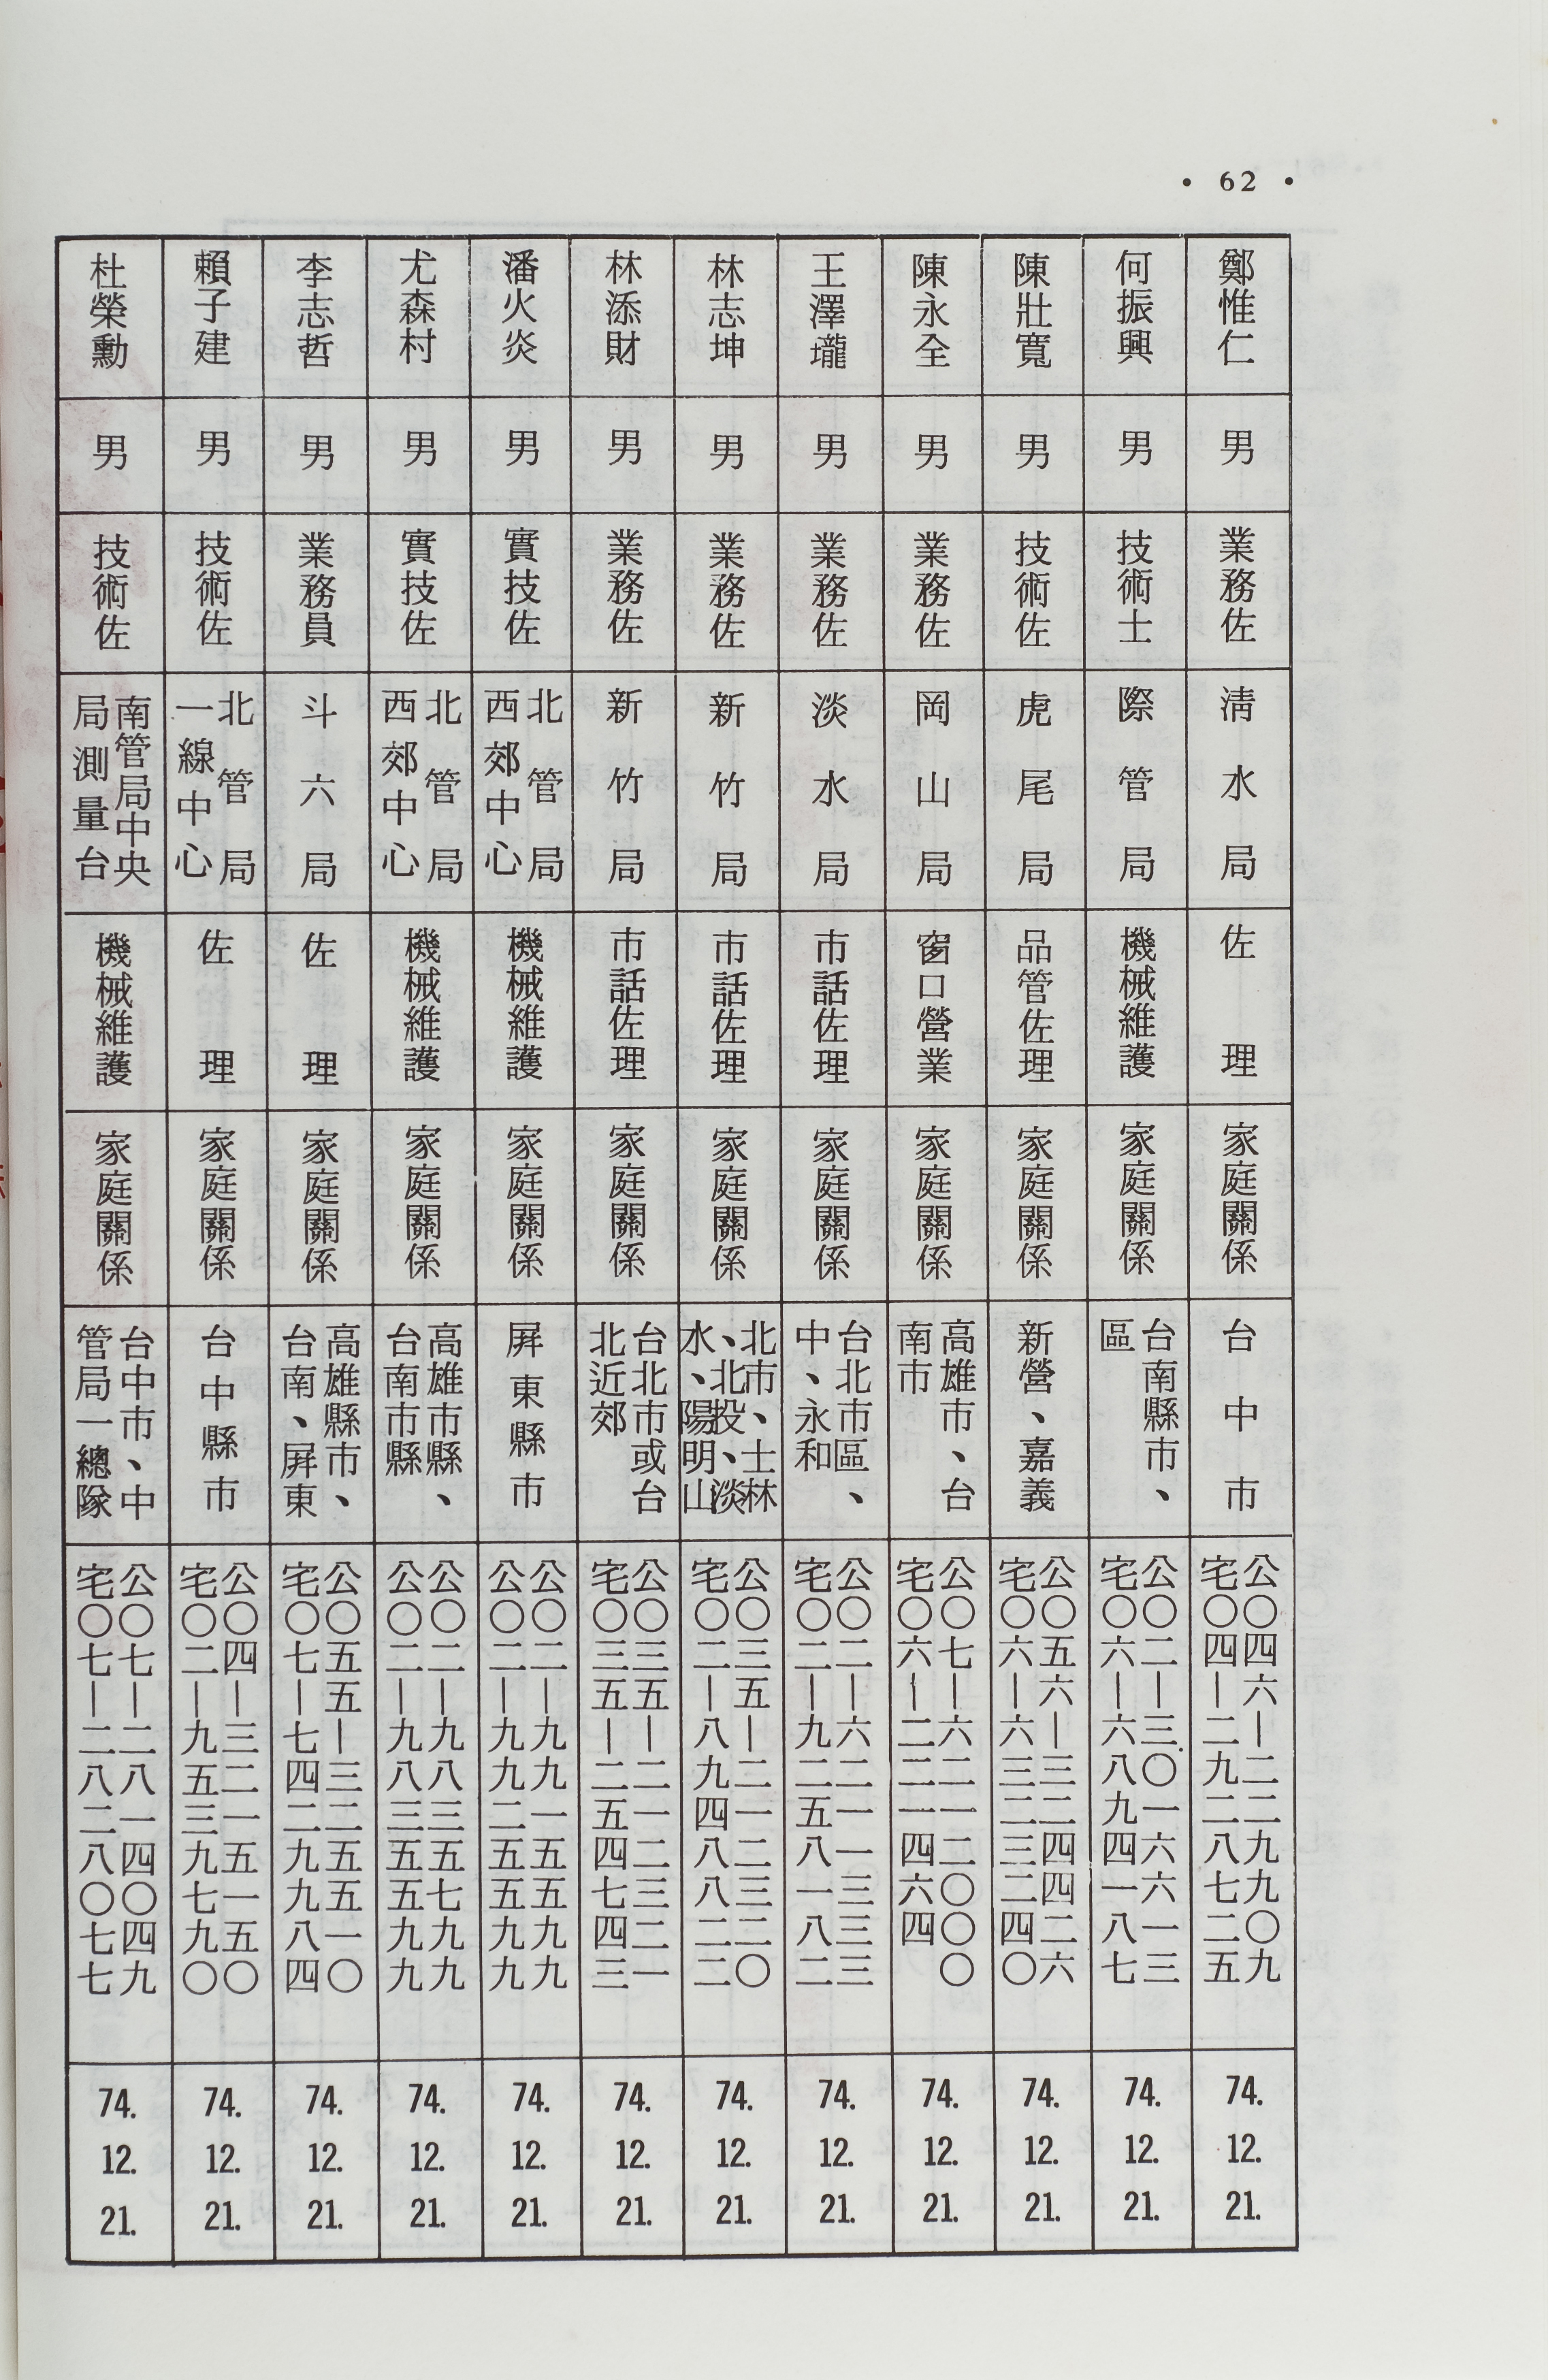 • 62 •
鄭惟仁
男
業務佐
清水局
佐理
家庭關係
台中市
公〇四六—二二九九〇九
宅〇四—二九二八七二五
74.
12.
21.
何振興
男
技術士
際管局
機械維護
家庭關係
台南縣市、
區
公〇二—三〇一六六一三
宅〇六—六八九四一八七
74.
12.
21.
陳壯寬
男
技術佐
虎尾局
品管佐理
家庭關係
新營、嘉義
公〇五六—三二四四二六
宅〇六—六三二三二四〇
74.
12.
21.
陳永全
男
業務佐
岡山局
窗口營業
家庭關係
高雄市、台
南市
公〇七—六二一二〇〇〇
宅〇六—二二一四六四
74.
12.
21.
王澤瓏
男
業務佐
淡水局
市話佐理
家庭關係
台北市區、
中、永和
公〇二—六二一一三三三
宅〇二—九二五八一八二
74.
12.
21.
林志坤
男
業務佐
新竹局
市話佐理
家庭關係
北市、士林
、北投、淡
水、陽明山
公〇三五—二一二三二〇
宅〇二—八九四八八二二
74.
12.
21.
林添財
男
業務佐
新竹局
市話佐理
家庭關係
台北市或台
北近郊
公〇三五—二一二三二一
宅〇三五—二五四七四三
74.
12.
21.
潘火炎
男
實技佐
北管局
西郊中心
機械維護
家庭關係
屏東縣市
公〇二—九九一五五九九
公〇二—九九二五五九九
74.
12.
21.
尤森村
男
實技佐
北管局
西郊中心
機械維護
家庭關係
高雄市縣、
台南市縣
公〇二—九八三五七九九
公〇二—九八三五五九九
74.
12.
21.
李志哲
男
業務員
斗六局
佐理
家庭關係
高雄縣市、
台南、屏東
公〇五五—三二五五一〇
宅〇七—七四二九九八四
74.
12.
21.
賴子建
男
技術佐
北管局
一線中心
佐理
家庭關係
台中縣市
公〇四—三二一五一五〇
宅〇二—九五三九七九〇
74.
12.
21.
杜榮勳
男
技術佐
南管局中央
局測量台
機械維護
家庭關係
台中市、中
管局一總隊
公〇七—二八一四〇四九
宅〇七—二八二八〇七七
74.
12.
21.